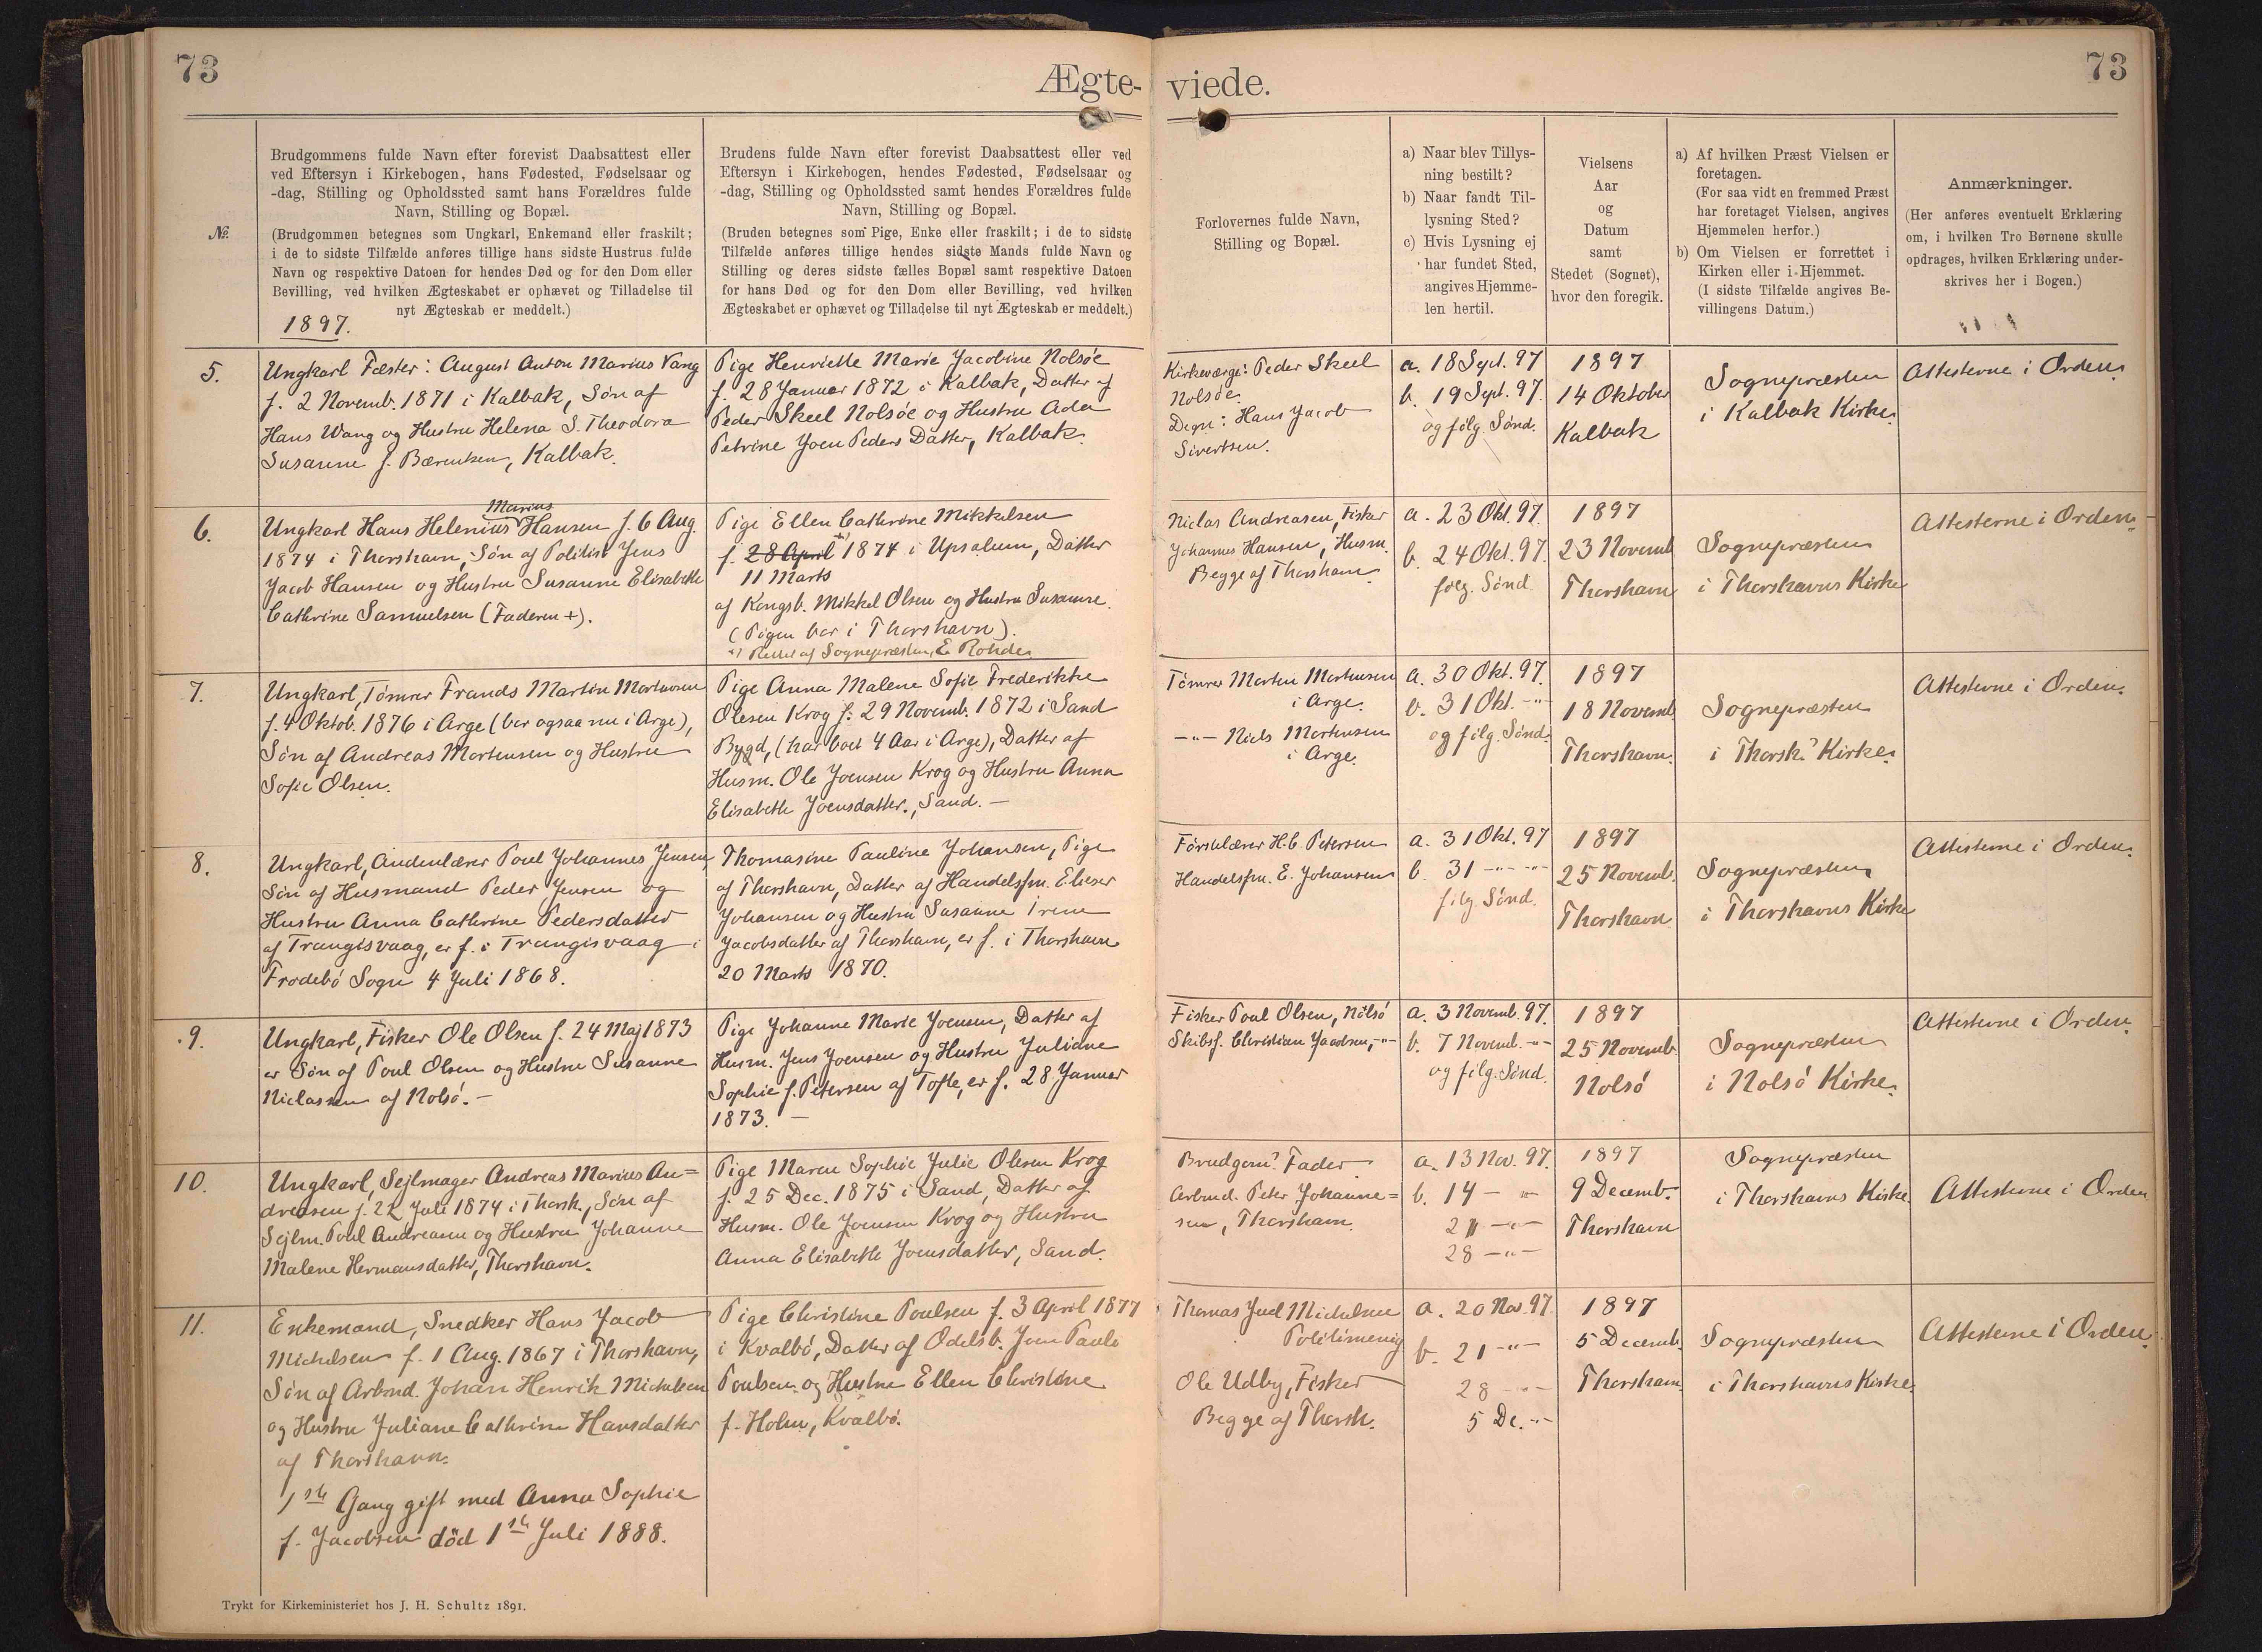 73
73
Ægte-
viede.
№
Brudgommens fulde Navn efter forevist Daabsattest eller
ved Eftersyn i Kirkebogen, hans Fødested, Fødselsaar og
-dag, Stilling og Opholdssted samt hans Forældres fulde
Navn, Stilling og Bopæl.
(Brudgommen betegnes som Ungkarl, Enkemand eller fraskilt;
i de to sidste Tilfælde anføres tillige hans sidste Hustrus fulde
Navn og respektive Datoen for hendes Død og for den Dom eller
Bevilling, ved hvilken Ægteskabet er ophævet og Tilladelse til
nyt Ægteskab er meddelt.)
1897.
Brudens fulde Navn efter forevist Daabsattest eller ved
Eftersyn i Kirkebogen, hendes Fødested, Fødselsaar og
-dag, Stilling og Opholdssted samt hendes Forældres fulde
Navn, Stilling og Bopæl.
(Bruden betegnes som Pige, Enke eller fraskilt; i de to sidste
Tilfælde anføres tillige hendes sidste Mands fulde Navn og
Stilling og deres sidste fælles Bopæl samt respektive Datoen
for hans Død og for den Dom eller Bevilling, ved hvilken
Ægteskabet er ophævet og Tilladelse til nyt Ægteskab er meddelt.)
Forlovernes fulde Navn,
Stilling og Bopæl.
a) Naar blev Tillys-
ning bestilt?
b) Naar fandt Til-
lysning Sted?
c) Hvis Lysning ej
har fundet Sted,
angives Hjemme-
len hertil.
Vielsens
Aar
og
Datum
samt
Stedet (Sognet),
hvor den foregik.
a) Af hvilken Præst Vielsen er
foretagen.
(For saa vidt en fremmed Præst
har foretaget Vielsen, angives
Hjemmelen herfor.)
b) Om Vielsen er forrettet i
Kirken eller i Hjemmet.
(I sidste Tilfælde angives Be-
villingens Datum.)
Anmærkninger.
(Her anføres eventuelt Erklæring
om, i hvilken Tro Børnene skulle
opdrages, hvilken Erklæring under-
skrives her i Bogen.)
5.
Ungkarl Fæster: August Anton Marius Vang
f. 2 Novemb. 1871 i Kalbak, Søn af
Hans Wang og Hustru Helena S. Theodora
Susanne f. Bærentsen, Kalbak.
Pige Henriette Marie Jacobine Nolsøe
f. 28 Januar 1872 i Kalbak, Datter af
Peder Skeel Nolsøe og Hustru Ada
Petrine Joen Peders Datter, Kalbak.
Kirkeværge: Peder Skeel
Nolsøe.
Degn: Hans Jacob
Sivertsen.
a. 18 Sept. 97
b. 19 Sept. 97.
og følg. Sønd.
1897
14 Oktober
Kalbak
Sognepræsten
i Kalbak Kirke.
Attesterne i Orden.
6.
Marius
Ungkarl Hans Helenius Hansen f. 6 Aug.
1874 i Thorshavn, Søn af Politist Jens
Jacob Hansen og Hustru Susanne Elisabeth
Cathrine Samuelsen (Faderen +).
Pige Ellen Cathrine Mikkelsen
f. 28 April + 1874 i Upsalum, Datter
11 Marts
af Kongsb. Mikkel Olsen og Hustru Susanne.
(Pigen bor i Thorshavn).
+) Rettet af Sognepræsten, E. Rohde
Niclas Andreasen, Fisker
Johannes Hansen, Husm.
Begge af Thorshavn.
a. 23 Okt. 97.
b. 24 Okt. 97.
følg. Sønd.
1897
23 Novemb
Thorshavn
Sognepræsten
i Thorshavns Kirke
Attesterne i Orden.
7.
Ungkarl, Tømrer Frands Martin Mortensen
f. 4 Oktob. 1876 i Arge (bor ogsaa nu i Arge),
Søn af Andreas Mortensen og Hustru
Sofie Olsen.
Pige Anna Malene Sofie Frederikke
Olesen Krog f. 29 Novemb. 1872 i Sand
Bygd, (har boet 4 Aar i Arge), Datter af
Husm. Ole Joensen Krog og Hustru Anna
Elisabeth Joensdatter., Sand. —
Tømrer Morten Mortensen
i Arge.
—"— Niels Mortensen
i Arge.
a. 30 Okt. 97.
b. 31 Okt. -"-
og følg. Sønd.
1897
18 Novemb
Thorshavn.
Sognepræsten
i Thorsh.s Kirke.
Attesterne i Orden.
8.
Ungkarl, Andenlærer Poul Johannes Jensen,
Søn af Husmand Peder Jensen og
Hustru Anna Cathrine Pedersdatter
af Trangisvaag, er f. i Trangisvaag i
Frodebø Sogn 4 Juli 1868.
Thomasine Pauline Johansen, Pige
af Thorshavn, Datter af Handelsfm. Elieser
Johansen og Hustru Susanne Irene
Jacobsdatter af Thorshavn, er f. i Thorshavn
20 Marts 1870.
Førstelærer H. C. Petersen
Handelsfm. E. Johansen
a. 31 Okt. 97
b. 31 -"- -"-
følg Sønd.
1897
25 Novemb.
Thorshavn
Sognepræsten
i Thorshavns Kirke
Attesterne i Orden.
9.
Ungkarl, Fisker Ole Olsen f. 24 Maj 1873
er Søn af Poul Olsen og Hustru Susanne
Niclassen af Nolsø. —
Pige Johanne Marie Joensen, Datter af
Husm. Jens Joensen og Hustru Juliane
Sophie f. Petersen af Tofte, er f. 28 Januar
1873. —
Fisker Poul Olsen, Nolsø
Skibsf. Christian Jacobsen, -"-
a. 3 Novemb. 97.
b. 7 Novemb. -"-
og følg. Sønd.
1897
25 Novemb
Nolsø
Sognepræsten
i Nolsø Kirke.
Attesterne i Orden.
10.
Ungkarl, Sejlmager Andreas Marius An=
dreasen f. 22 Juli 1874 i Thorsh., Søn af
Sejlm. Poul Andreasen og Hustru Johanne
Malene Hermansdatter, Thorshavn.
Pige Maren Sophie Julie Olesen Krog
f. 25 Dec. 1875 i Sand, Datter af
Husm. Ole Joensen Krog og Hustru
Anna Elisabeth Joensdatter, Sand.
Brudgoms Fader
Arbmd. Peter Johanne=
sen, Thorshavn.
a. 13 Nov. 97.
b. 14 — "—
21 —"—
28 —"—
1897
9 Decemb.
Thorshavn
Sognepræsten
i Thorshavns Kirke
Attesterne i Orden
11.
Enkemand, Snedker Hans Jacob
Michelsen f. 1 Aug. 1867 i Thorshavn,
Søn af Arbmd. Johan Henrik Michelsen
og Hustru Juliane Cathrine Hansdatter
af Thorshavn.
1ste Gang gift med Anna Sophie
f. Jacobsen død 1ste Juli 1888.
Pige Christine Poulsen f. 3 April 1877
i Kvalbø, Datter af Odelsb. Joen Paule
Poulsen og Hustru Ellen Christine
f. Holm, Kvalbø.
Thomas Juel Michelsen
Politimenig
Ole Udby, Fisker
Begge af Thorsh.
a. 20 Nov. 97
b. 21 -"-
28 -"-
5 De. -"-
1897
5 Decemb.
Thorshavn
Sognepræsten
i Thorshavns Kirke.
Attesterne i Orden.
Trykt for Kirkeministeriet hos J. H. Schultz 1891.